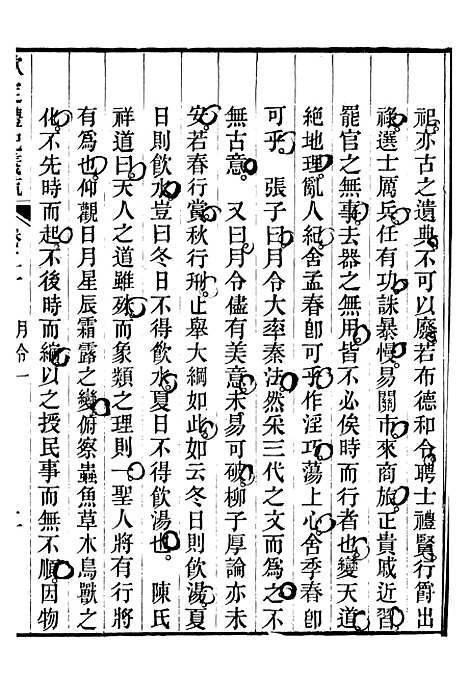 祀亦古之遺典不可以廢若布德和令聘士禮賢行爵出
祿選士厲兵任有功誅暴慢易關市來商旅正貴戚近習
罷官之無事去器之無用皆不必俟時而行者也變天道
絕地理亂人紀舍孟春卽可乎作淫巧蕩上心舍季春卽
可乎　張子曰月令大率秦法然采三代之文而為之不
無古意　又曰月令儘有美意未易可破柳子厚論亦未
安若春行賞秋行刑止舉大綱如此如云冬日則飲湯夏
日則飲水豈曰冬日不得飲水夏日不得飲湯也　陳氏
祥道曰天人之道雖殊而象類之理則一聖人將有行將
有為也仰觀日月星辰霜露之變俯察蟲魚草木鳥獸之
化不先時而起不後時而縮以之授民事而無不順因物
欽定禮記義疏　月令一